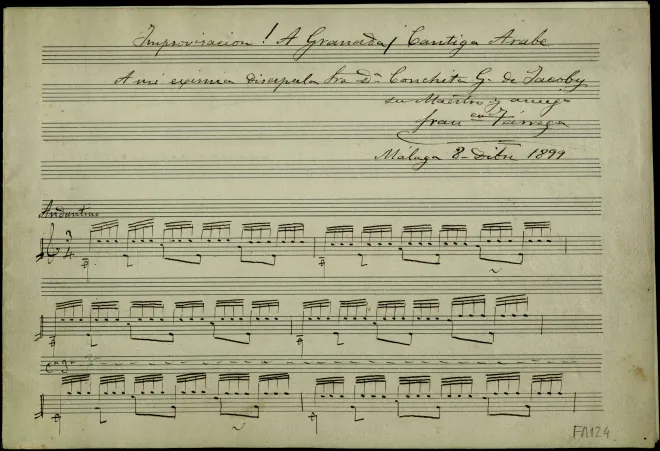 Improvisacion! A Granada! Cantiga Arabe
A mi eximia discipula Sra Dª Conchita G. de Jacoby
su Maestro y amigo
Franco Tárrega
Málaga 8 Dibre 1899
Andantino
3/4
FA124